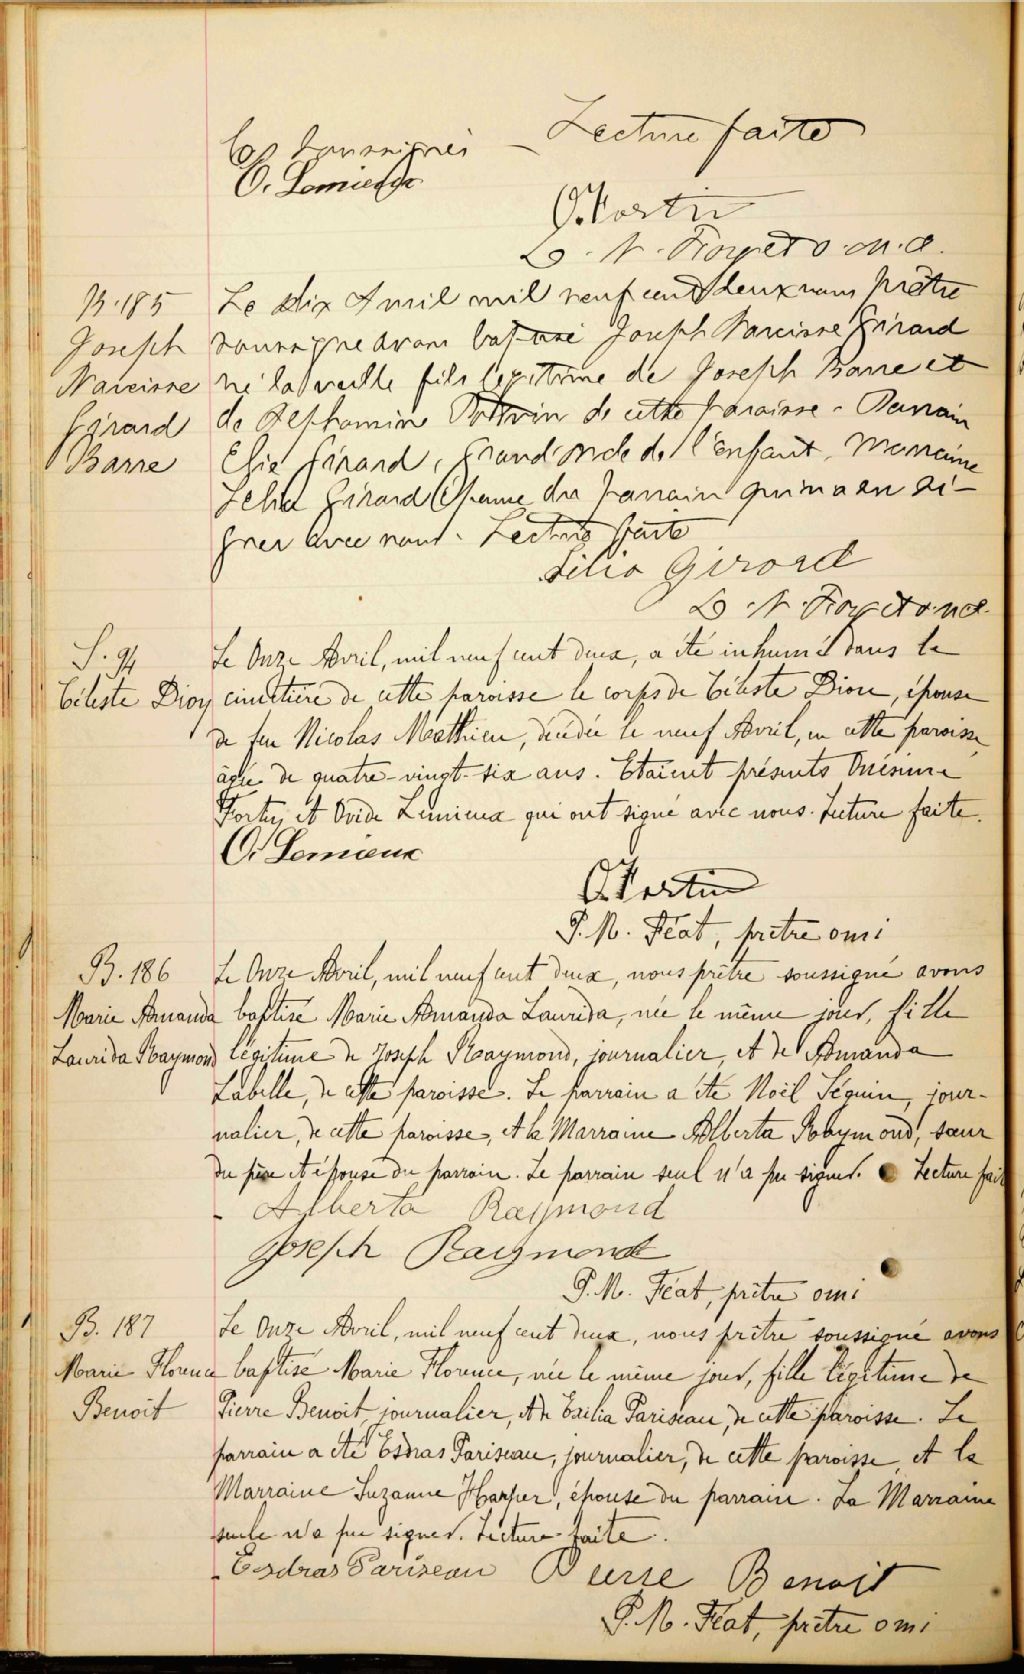 Lecture faite
soussignés
O. Lemieux
O. Fortin
B. 185
Joseph
Narcisse
Girard
Barre
Le dix Avril mil neuf cent deux nous prêtre
soussigné avons baptisé Joseph Narcisse Girard
né la veille fils légitime de Joseph Barre et
de Alphonsin Potvin de cette paroisse - Parrain
Elie Girard, Grand'oncle de l'enfant, Marraine
Lelia Girard Épouse du parrain qui n'a su si-
gner avec nous. Lecture faite
Lilia Girard
S. 94
Céleste Dion
Le Onze Avril, mil neuf cent deux, a été inhumé dans le
cimetière de cette paroisse le corps de Céleste Dion, épouse
de feu Nicolas Mathieu, décédée le neuf Avril, en cette paroisse
âgée de quatre-vingt-six ans. Etaient présents Onésime
Fortin et Ovide Lemieux qui ont signé avec nous. Lecture faite.
O. Lemieux
O. Fortin
P. M. Féat, prêtre omi
B. 186
Marie Amanda
Laurida Raymond
Le Onze Avril, mil neuf cent deux, nous prêtre soussigné avons
baptisé Marie Amanda Laurida, née le même jour, fille
légitime de Joseph Raymond, journalier, et de Amanda
Labelle, de cette paroisse. Le parrain a été Noël Séguin, jour-
nalier, de cette paroisse, et la Marraine Alberta Raymond, sœur
du père et épouse du parrain. Le parrain seul n'a pu signer. Lecture fait
Alberta Raymond
Joseph Raymond
P. M. Féat, prêtre omi
B. 187
Marie Florence
Benoit
Le Onze Avril, mil neuf cent deux, nous prêtre soussigné avons
baptisé Marie Florence, née le même jour, fille légitime de
Pierre Benoit, journalier, et de Exilia Pariseau, de cette paroisse. Le
parrain a été Esdras Pariseau, journalier, de cette paroisse, et la
Marraine Suzanne Harper, épouse du parrain. La Marraine
seule n'a pu signer. Lecture faite.
Esdras Pariseau Pierre Benoit
P. M. Féat, prêtre omi